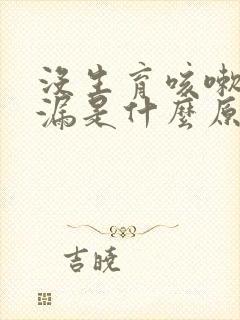 没生育咳嗽
漏是什麼原
吉曉